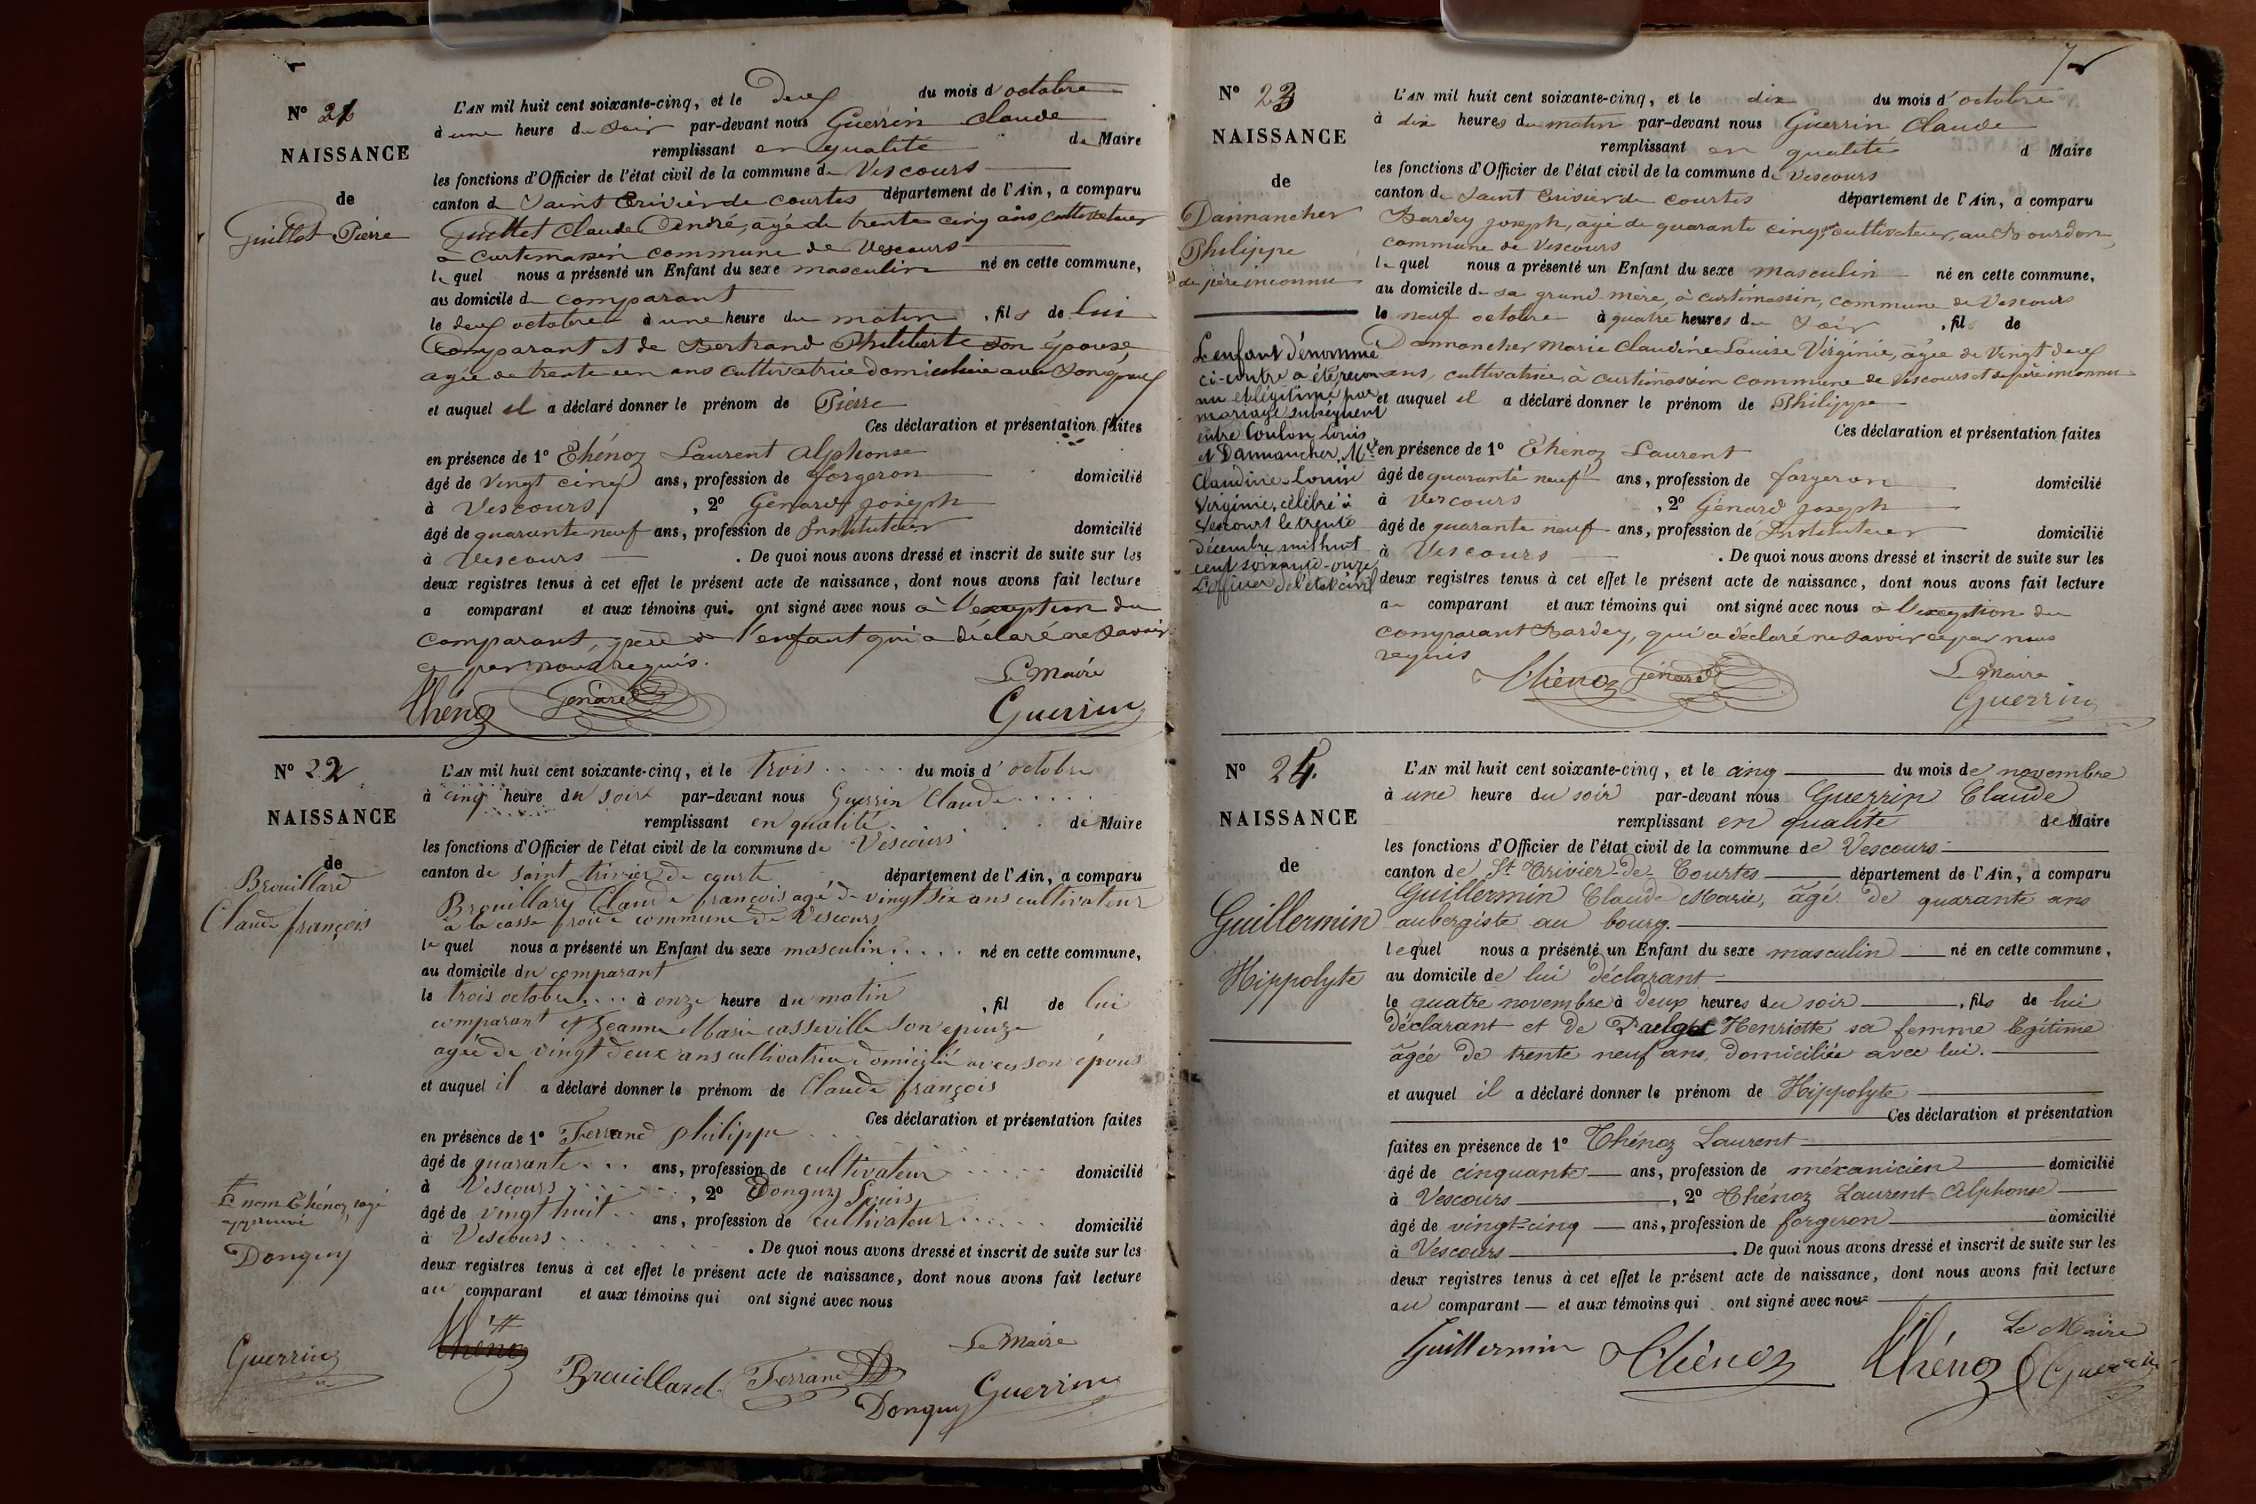 N° 21
NAISSANCE
de
Guillot Pierre
L'AN mil huit cent soixante-cinq, et le deux du mois d'octobre
à une heure du soir par-devant nous Guerrin Claude
remplissant en qualité de Maire
les fonctions d'Officier de l'état civil de la commune de Vescours
canton de Saint Trivier de Courtes département de l'Ain, a comparu
Guillot Claude André, agé de trente cinq ans, cultivateur
à curtimassin commune de Vescours
lequel nous a présenté un Enfant du sexe masculin né en cette commune,
au domicile du comparant
le deux octobre à une heure du matin, fils de lui
Comparant et de Bertrand Philiberte son épouse,
agée de trente un ans cultivatrice domiciliée avec son époux
et auquel il a déclaré donner le prénom de Pierre
Ces déclaration et présentation faites
en présence de 1° Thénoz Laurent Alphonse
âgé de vingt cinq ans, profession de forgeron domicilié
à Vescours, 2° Génard joseph
âgé de quarante neuf ans, profession de Instituteur domicilié
à Vescours. De quoi nous avons dressé et inscrit de suite sur les
deux registres tenus à cet effet le présent acte de naissance, dont nous avons fait lecture
a comparant et aux témoins qui ont signé avec nous à l'exception du
comparant, père de l'enfant qui a déclaré ne savoir
ce par nous requis.
Le Maire
Thénoz Génard Guerrin
N° 22
NAISSANCE
de
Brouillard
Claude françois
L'AN mil huit cent soixante-cinq, et le trois du mois d'octobre
à cinq heure du soir par-devant nous Guerrin Claude
remplissant en qualité de Maire
les fonctions d'Officier de l'état civil de la commune de Vescours
canton de saint trivier de courte département de l'Ain, a comparu
Brouillard Claude françois agé de vingt six ans cultivateur
à la casse froide commune de Vescours
lequel nous a présenté un Enfant du sexe masculin né en cette commune,
au domicile du comparant
le trois octobre à onze heure du matin, fil de lui
comparant et Jeanne Marie casseville son épouze
agée de vingt deux ans cultivatrice domicilié avec son épous
et auquel il a déclaré donner le prénom de Claude françois
Ces déclaration et présentation faites
en présence de 1° Ferrand philippe
âgé de quarante ans, profession de cultivateur domicilié
à Vescours, 2° Donguy Louis
âgé de vingt huit ans, profession de cultivateur domicilié
à Vescours. De quoi nous avons dressé et inscrit de suite sur les
deux registres tenus à cet effet le présent acte de naissance, dont nous avons fait lecture
au comparant et aux témoins qui ont signé avec nous
Le nom Thénoz rayé
approuvé
Donguy
Guerrin
Thénoz
Le Maire
Brouillard Ferrand Donguy Guerrin
7
N° 23
NAISSANCE
de
Dannancher
Philippe
de père inconnu
L'enfant dénommé
ci-contre a été recon
nu et légitimé par
mariage subséquent
entre Coulon Louis
et Dannancher Mie
Claudine-Louise
Virginie, célébré à
Vescours le trente
décembre mil huit
cent soixante-onze
L'officier de l'état civil
L'AN mil huit cent soixante-cinq, et le dix du mois d'octobre
à dix heures du matin par-devant nous Guerrin Claude
remplissant en qualité d Maire
les fonctions d'Officier de l'état civil de la commune de Vescours
canton de Saint Trivier de Courtes département de l'Ain, a comparu
Bardey joseph, agé de quarante cinq ans, cultivateur, au Bourdon,
commune de Vescours
lequel nous a présenté un Enfant du sexe masculin né en cette commune,
au domicile de sa grand mère, à curtimassin, commune de Vescours
le neuf octobre à quatre heures du soir, fil de
Dannancher Marie Claudine Louise Virginie, agée de vingt deux
ans, cultivatrice, à curtimassin commune de Vescours et de père inconnu
et auquel il a déclaré donner le prénom de Philippe
Ces déclaration et présentation faites
en présence de 1° Thénoz Laurent
âgé de quarante neuf ans, profession de forgeron domicilié
à Vescours, 2° Génard joseph
âgé de quarante neuf ans, profession de Instituteur domicilié
à Vescours. De quoi nous avons dressé et inscrit de suite sur les
deux registres tenus à cet effet le présent acte de naissance, dont nous avons fait lecture
au comparant et aux témoins qui ont signé avec nous à l'exception du
comparant Bardey, qui a déclaré ne savoir ce par nous
requis
Le Maire
Thénoz Génard Guerrin
N° 24.
NAISSANCE
de
Guillermin
Hippolyte
L'AN mil huit cent soixante-cinq, et le cinq du mois de novembre
à une heure du soir par-devant nous Guerrin Claude
remplissant en qualité de Maire
les fonctions d'Officier de l'état civil de la commune de Vescours
canton de St Trivier-de-Courtes département de l'Ain, a comparu
Guillermin Claude Marie, âgé de quarante ans
aubergiste au bourg.
lequel nous a présenté un Enfant du sexe masculin né en cette commune,
au domicile de lui déclarant
le quatre novembre à deux heures du soir, fils de lui
déclarant et de Henriette sa femme légitime
âgée de trente neuf ans, domiciliée avec lui.
et auquel il a déclaré donner le prénom de Hippolyte
Ces déclaration et présentation
faites en présence de 1° Thénoz Laurent
âgé de cinquante ans, profession de mécanicien domicilié
à Vescours, 2° Thénoz Laurent Alphonse
âgé de vingt-cinq ans, profession de forgeron domicilié
à Vescours. De quoi nous avons dressé et inscrit de suite sur les
deux registres tenus à cet effet le présent acte de naissance, dont nous avons fait lecture
au comparant et aux témoins qui ont signé avec nous
Le Maire
Guillermin Thénoz Thénoz Guerrin